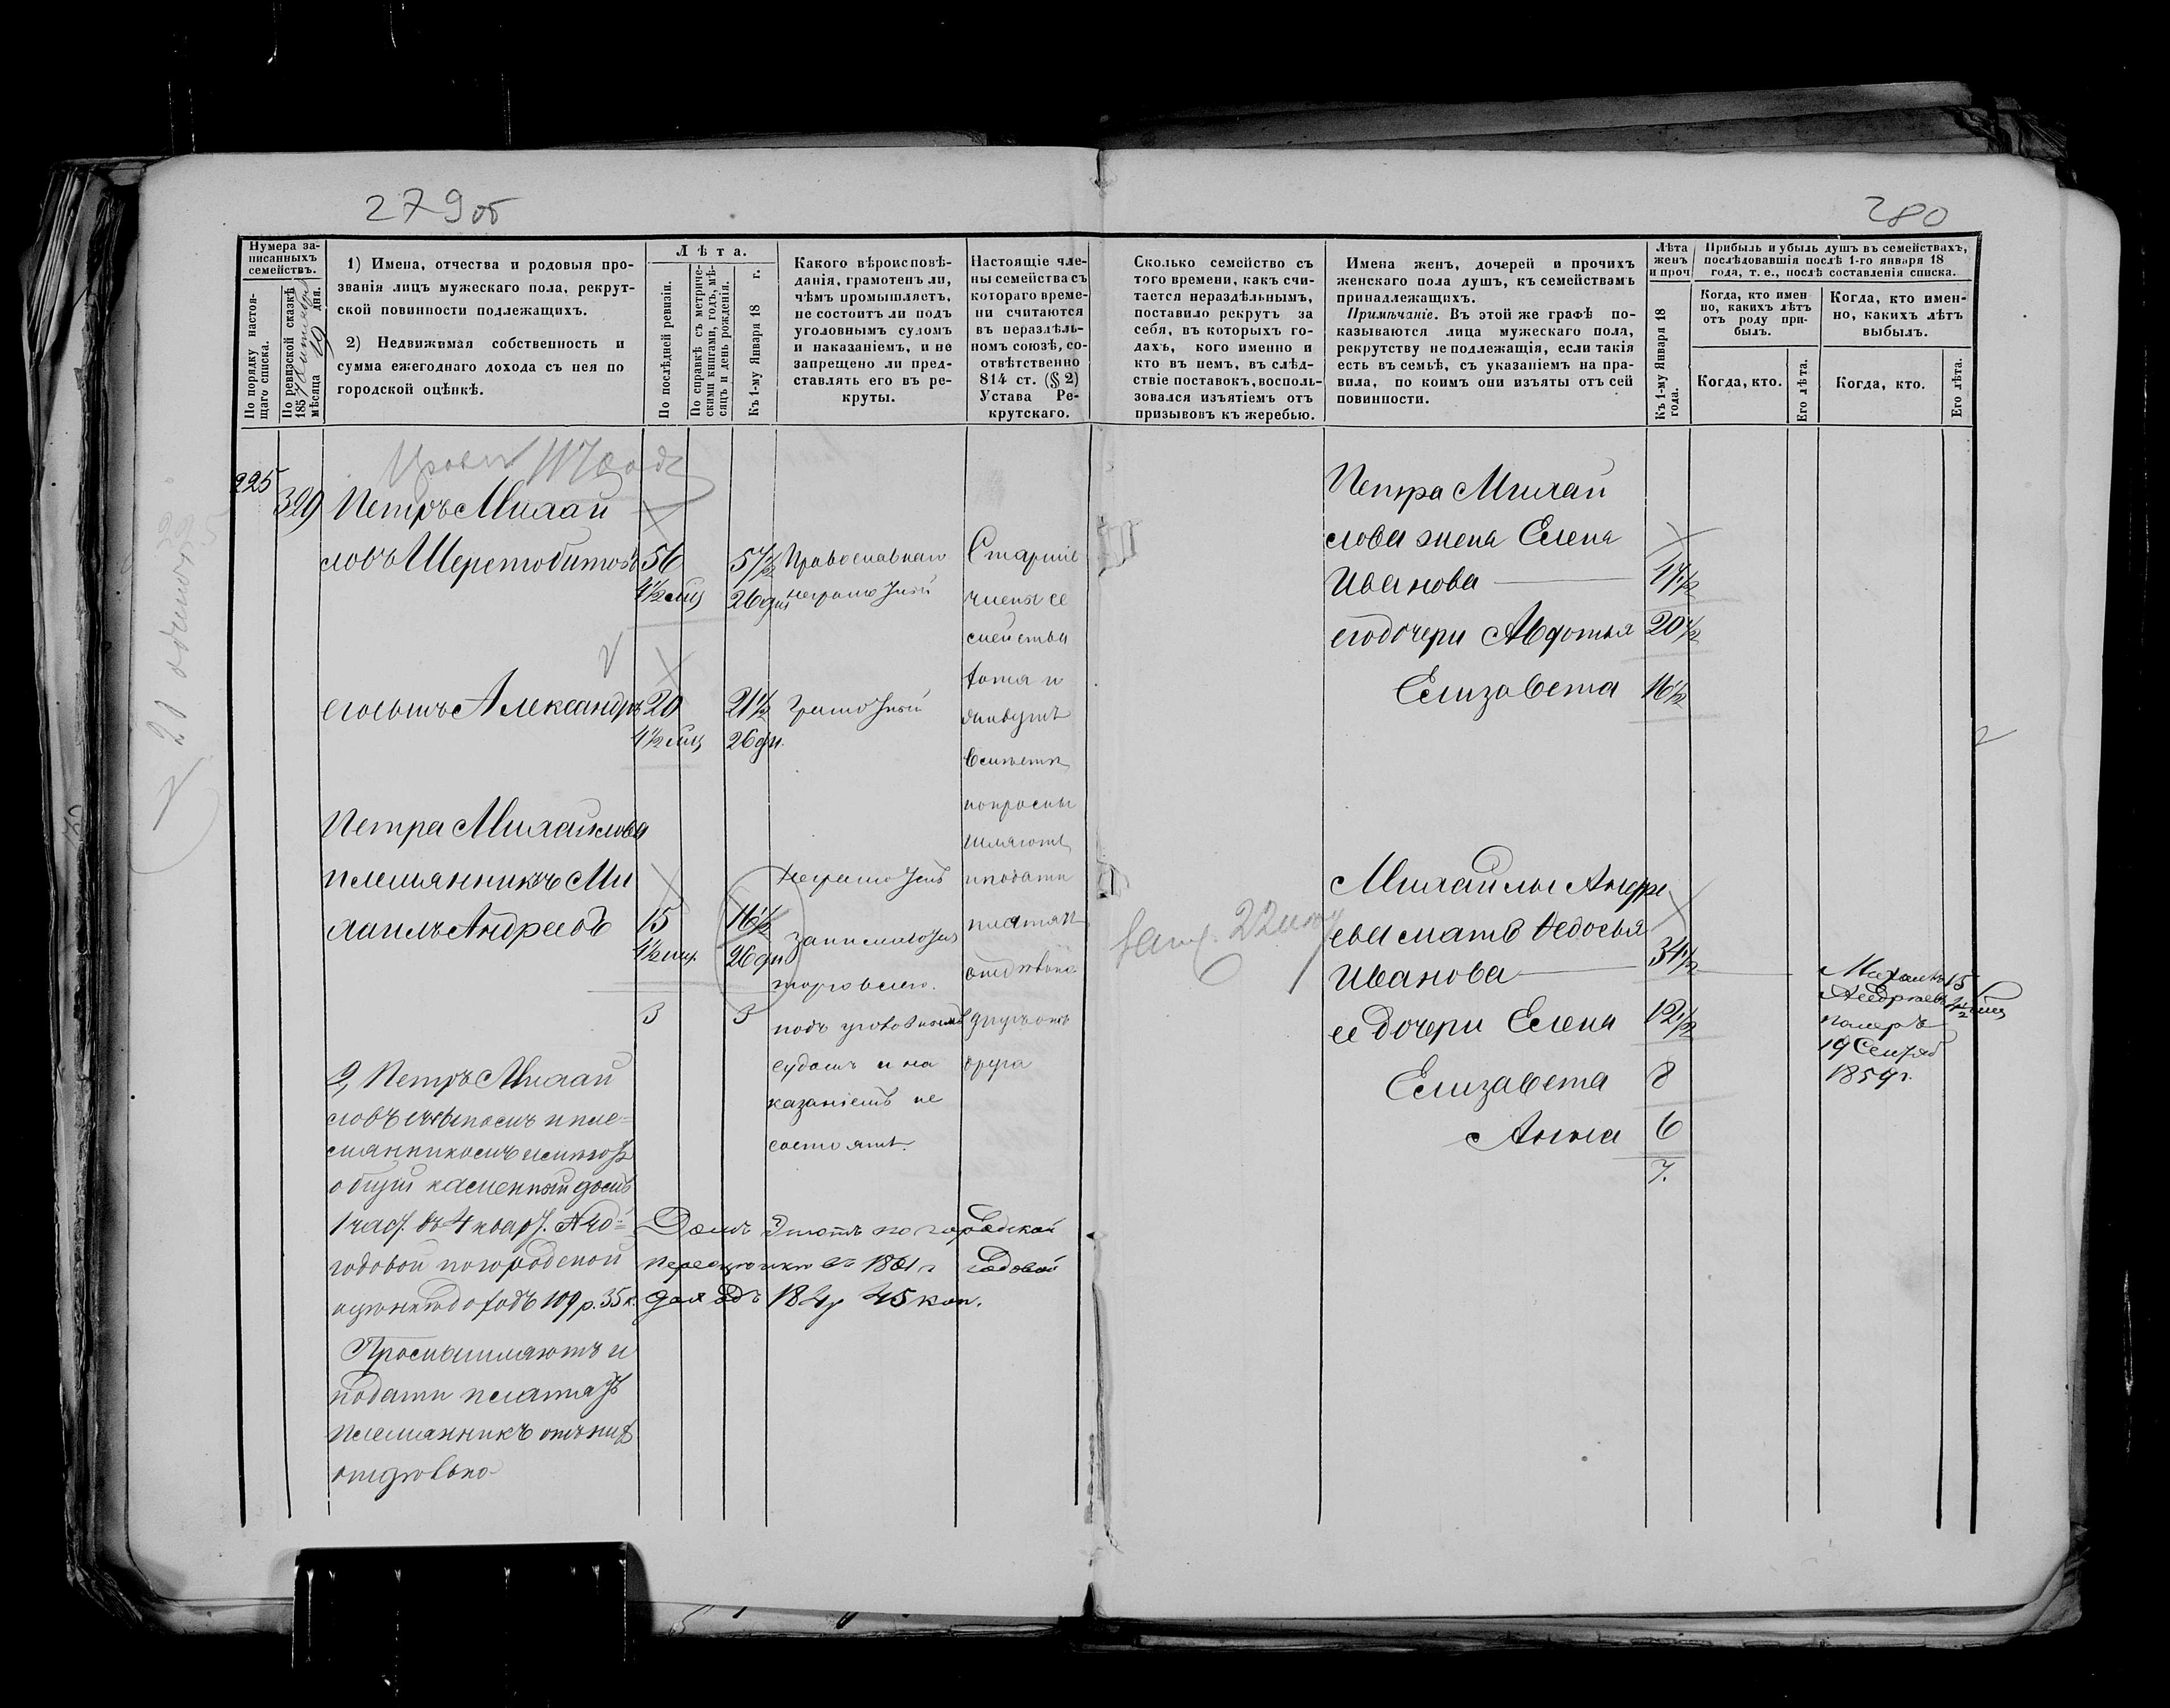 279 об
280
Нумера записанныхъ семействъ.
По порядку настоящаго списка.
По ревизской сказкѣ 1857 мѣсяца 19 дня.
1) Имена, отчества и родовыя прозванія лицъ мужескаго пола, рекрутской повинности подлежащихъ.
2) Недвижимая собственность и сумма ежегоднаго дохода съ нея по городской оцѣнкѣ.
Лѣта.
По послѣдней ревизіи.
По справкѣ съ метрическими книгами, годъ, мѣсяцъ и день рожденія.
Къ 1-му Января 18 г.
Какого вѣроисповѣданія, грамотенъ ли, чѣмъ промышляетъ, не состоитъ ли подъ уголовнымъ судомъ и наказаніемъ, и не запрещено ли представлять его въ рекруты.
Настоящіе члены семейства съ котораго времени считаются въ нераздѣльномъ союзѣ, соотвѣтственно 814 ст. (§ 2) Устава Рекрутскаго.
Сколько семейство съ того времени, какъ считается нераздѣльнымъ, поставило рекрутъ за себя, въ которыхъ годахъ, кого именно и кто въ немъ, въ слѣдствіе поставокъ, воспользовался изъятіемъ отъ призывовъ къ жеребью.
Имена женъ, дочерей и прочихъ женскаго пола душъ, къ семействамъ принадлежащихъ.
Примѣчаніе. Въ этой же графѣ показываются лица мужескаго пола, рекрутству не подлежащія, если такія есть въ семьѣ, съ указаніемъ на правила, по коимъ они изъяты отъ сей повинности.
Лѣта женъ и проч
Къ 1-му Января 18 года.
Прибыль и убыль душъ въ семействахъ, послѣдовавшія послѣ 1-го января 18 года, т. е., послѣ составленія списка.
Когда, кто именно, какихъ лѣтъ отъ роду прибылъ.
Когда, кто именно, какихъ лѣтъ выбылъ.
Когда, кто.
Его лѣта.
Когда, кто.
Его лѣта.
225
399
Петръ Михай
ловъ Шерстобитовъ 56 57½
4½ мц 26 дн
его сынъ Александръ 20 21½
4½ мц 26 дн.
Петра Михайлова
племянникъ Ми
хаилъ Андреевъ 15 16½
4½ мц. 26 дн
3 3
2, Петръ Михай
ловъ съ сыномъ и пле=
мянникомъ имѣютъ
общій каменный домъ
1 част. въ 4 кварт. №40=
годовой по городской
оцѣнкѣ доходъ 109 р. 35 к.
Домъ этотъ по городской
переоцѣнкѣ въ 1861 г годовой
доходъ 184 р 45 коп.
Промышляютъ и
подати платятъ
племянникъ отъ нихъ
отдѣльно
Православнаго
неграмотный
Грамотный
Неграмотенъ
Занимаются
торговлею.
подъ уголовнымъ
судомъ и на
казаніемъ не
состоятъ.
Старшіе
члены се
мейства
хотя и
живутъ
вмѣстѣ
но промы
шляютъ
и подати
платятъ
отдѣльно
другъ отъ
друга
Петра Михай
лова жена Елена
Иванова 47½
его дочери Авдотья 20½
Елизавета 16½
Михаилы Андре
ева мать Ѳедосья
Иванова 34½
ее дочери Елена 12½
Елизавета 8
Анна 6
7.
Михаилъ 15
Андреевъ 4½ мц
померъ
19 Сентяб
1859 г.